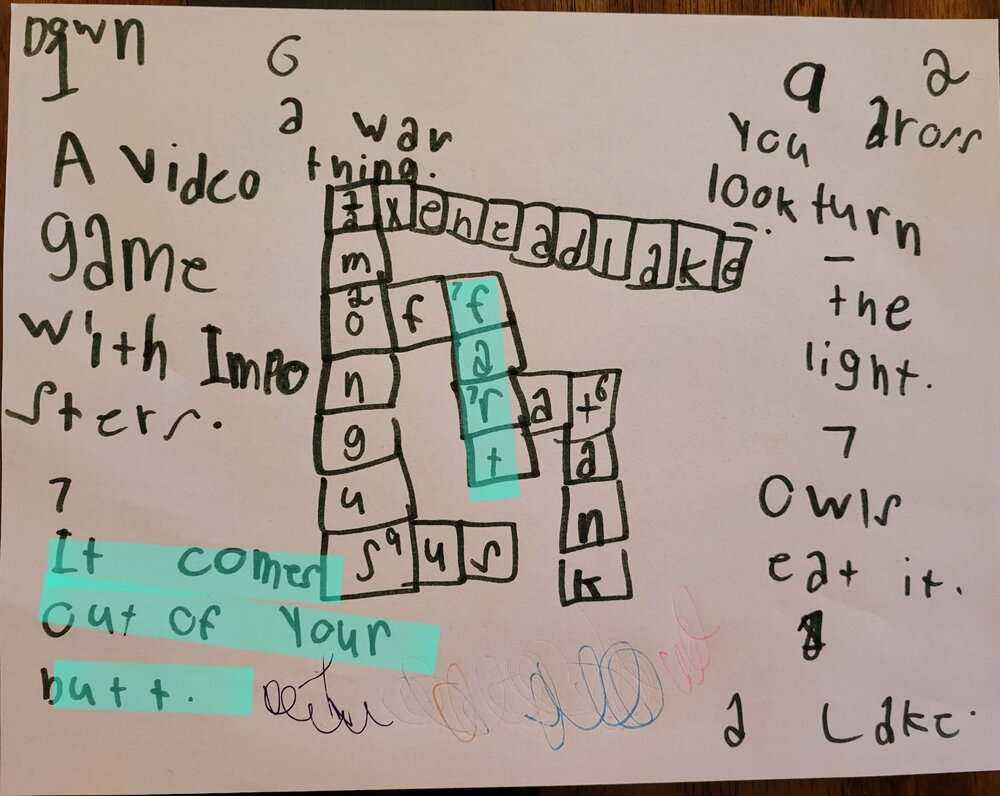 Down
1
A video
game
with Impo
sters.
7
It comes
out of your
butt.
6
a war
thing.
9 2
You aross
look turn
_ the
light.
7
Owls
eat it.
8
a Lake.
1a x e n e a d l a k e
m
2o f 7f
n a
g 7r a t6
u t a
s9 u s n
k